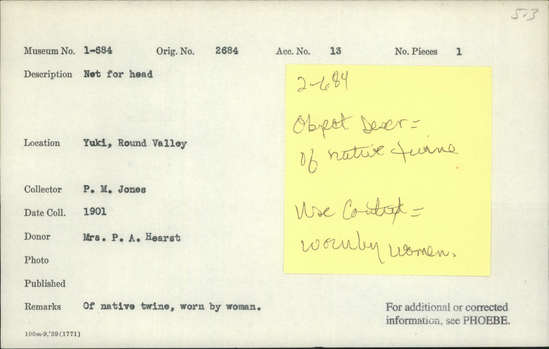 5-3
Museum No. 1-684 Orig. No. 2684 Acc. No. 13 No. Pieces 1
Description Net for head
2-684
Object Descr =
of native twine
Location Yuki, Round Valley
Collector P. M. Jones
Use Context =
worn by women.
Date Coll. 1901
Donor Mrs. P. A. Hearst
Photo
Published
Remarks Of native twine, worn by woman.
For additional or corrected
information, see PHOEBE.
100m-9,'39(1771)